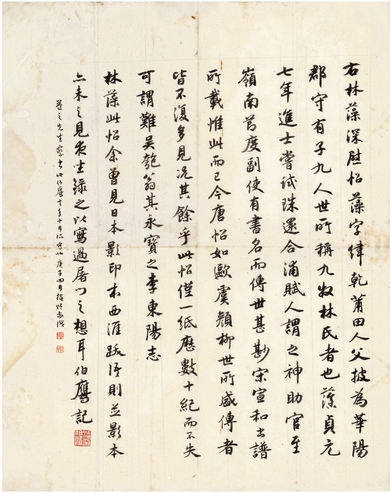 右林藻深慰帖藻字緯乾莆田人父披為華陽
郡守有子九人世所稱九牧林氏者也藻貞元
七年進士嘗試珠還合浦賦人謂之神助官至
嶺南節度副使有書名而傳世甚尠宋宣和書譜
所載惟此而已今唐帖如歐虞顏柳世所盛傳者
皆不復多見況其餘乎此帖僅一紙歷數十紀而不失
可謂難矣匏翁其永寶之李東陽志
林藻此帖余曾見日本影印本西涯跋語則並影本
亦未之見戾生錄之以寫過屠門之想耳伯鷹記